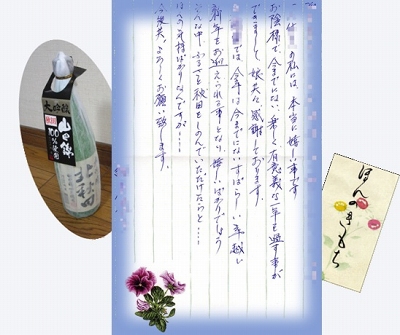 の私は、本当に嬉しい事です
お陰様で、今までにない楽しく有意義な一年を過す事が
できまして、娘共々感謝しております。
では、今年は今までにないすばらしい年越し
新年をお迎えられる事となり、嬉しいばかりでしょう
こんな中、ふるさと秋田をしのんでいただけたらと……
ほんの気持ばかりなんですが……
よろしくお願い致します。
大吟醸
秋田
山田錦
100%使用
北秋田
ほんのきもち